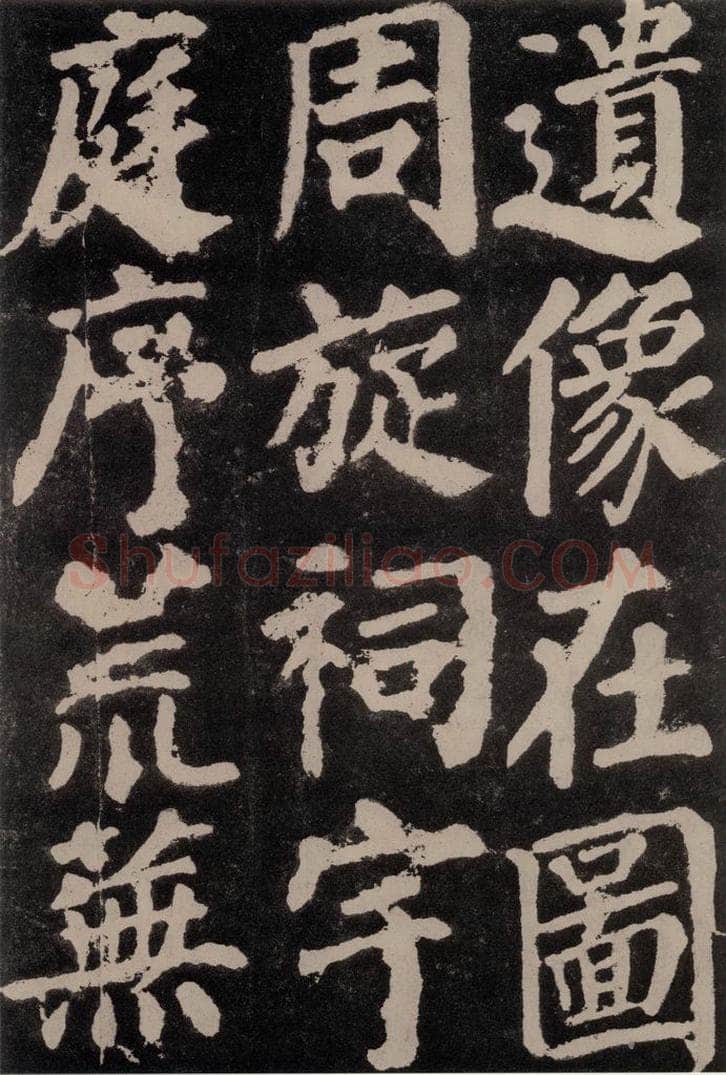 遺像在圖
周旋祠宇
庭序荒蕪
Shufaziliao.COM